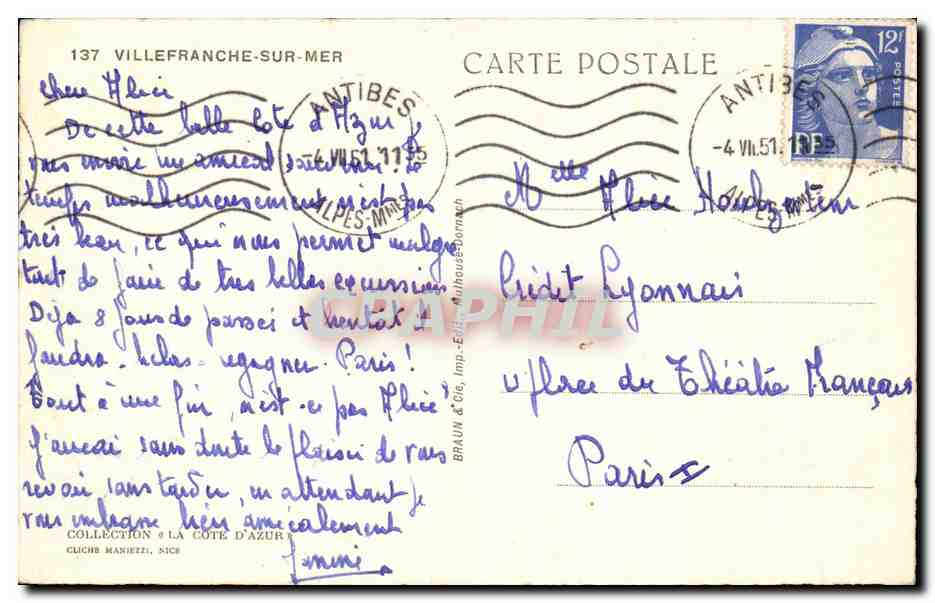 137 VILLEFRANCHE-SUR-MER
CARTE POSTALE
12F
POSTES
RF
ANTIBES
-4 VII.51. 11 35
ALPES-Mmes
ANTIBES
-4 VII.51. 11 35
ALPES-Mmes
Chere Alice
De cette belle Cote d'Azur je
vous envoie un amical souvenir. Le
temps malheureusement n'est pas
très beau, ce qui nous permet malgré
tout de faire de tres belles excursions
Deja 8 jours de passés et bientot il
faudra. helas. regagner. Paris!
Tout à une fin, n'est-ce pas Alice
J'aurai sans doute le plaisir de vous
revoir sans tarder, en attendant je
vous embrasse bien amicalement
Janine
Melle Alice
Crédit Lyonnais
place du Théâtre Français
Paris I
BRAUN & Cie, Imp.-Edit., Mulhouse-Dornach
COLLECTION « LA COTE D'AZUR »
CLICHE MANIEZZI, NICE
CPAPHIL